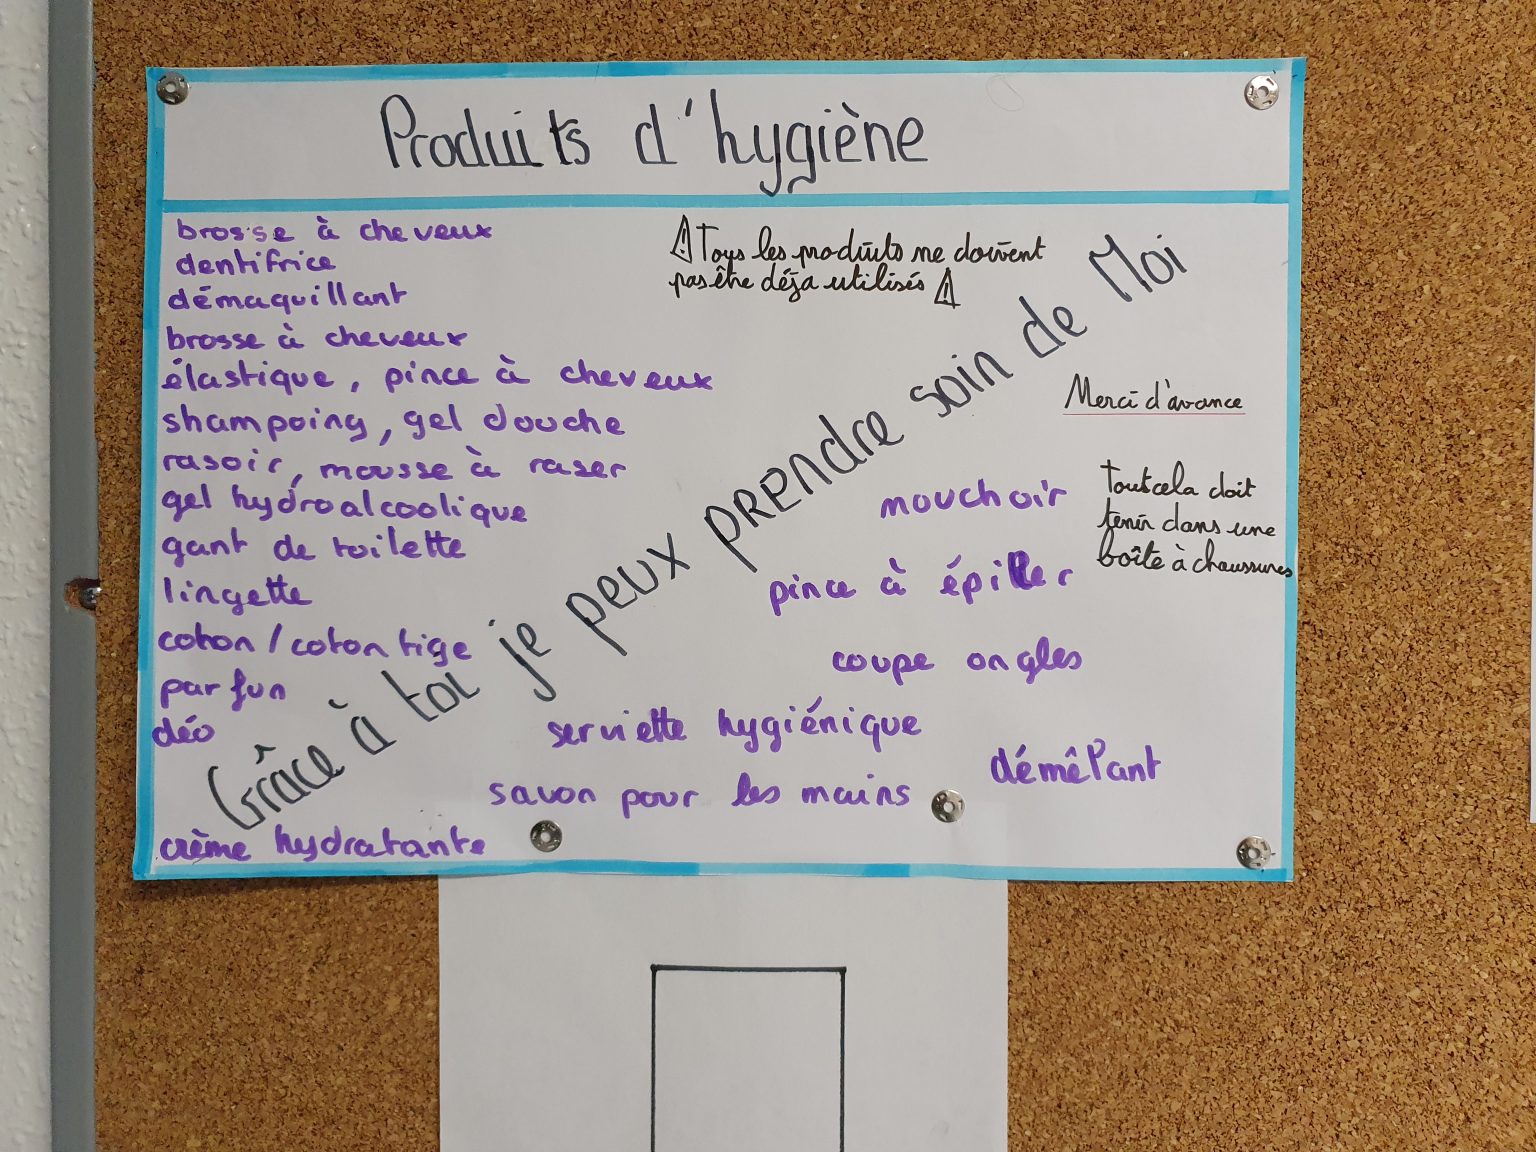 Produits d'hygiène
brosse à cheveux
dentifrice
démaquillant
brosse à cheveux
élastique, pince à cheveux
shampoing, gel douche
rasoir, mousse à raser
gel hydroalcoolique
gant de toilette
lingette
coton / coton tige
parfun
déo
crème hydratante
⚠ Tous les produits ne doivent
pas être déja utilisés ⚠
Grâce à toi je peux prendre soin de Moi
Merci d'avance
Tout cela doit
tenir dans une
boîte à chaussures
mouchoir
pince à épiller
coupe ongles
serviette hygiénique
démêlant
savon pour les mains